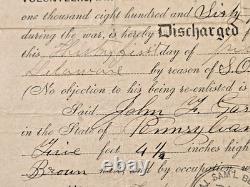 VOLUNTEERS,
one thousand eight hundred and Sixty
during the war, is hereby Discharged
this Thirty first day
Delaware by reason of S.O
(No objection to his being re-enlisted is
Said John F.
in the State of Pennsylvan
Five feet 4½ inches high
Brown hair, and by occupation
SAM'L B